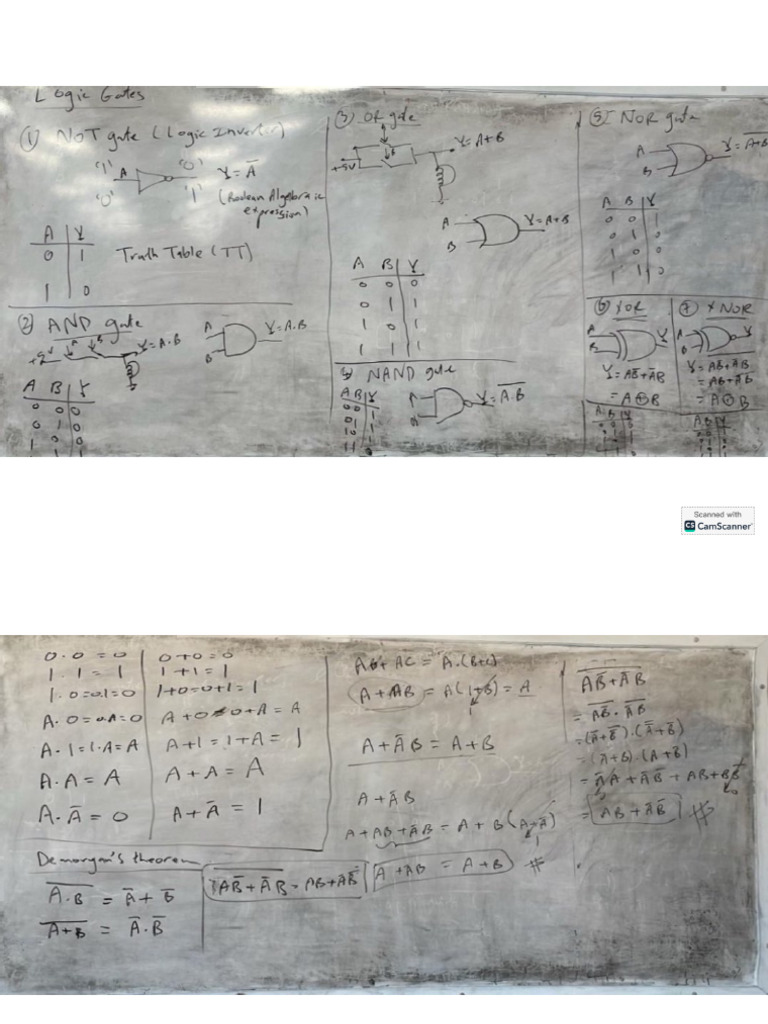 Logic Gates
① NOT gate (Logic Inverter)
'1' A '0' Y = A̅
'0' '1' (Boolean Algebraic
expression)
A | Y
0 | 1
1 | 0
Truth Table (TT)
② AND gate
+5V A B Y=A.B
A
B Y=A.B
A B | Y
0 0 | 0
0 1 | 0
1 0
③ OR gate
A
B
+5V Y=A+B
A
B Y=A+B
A B | Y
0 0 | 0
0 1 | 1
1 0 | 1
1 1 | 1
NAND gate
A B | Y
0 0 | 1
0 1 | 1
1 0 | 1
1 1 | 0
Y=A̅.̅B̅
⑤ NOR gate
A
B Y=A̅+̅B̅
A B Y
0 0 1
0 1 0
1 0 0
1 1 0
⑥ XOR
A
B Y
Y=AB̅+A̅B
= A⊕B
A B Y
⑦ XNOR
A
B Y
= AB+A̅B̅
= A⊙B
A B Y
Scanned with
CS CamScanner
0.0 = 0
1.1 = 1
1.0=0.1=0
A.0=0.A=0
A.1=1.A=A
A.A = A
A.A̅ = 0
0+0=0
1+1=1
1+0=0+1=1
A+0=0+A=A
A+1=1+A=1
A+A=A
A+A̅=1
Demorgan's theorem
A̅.̅B̅ = A̅+B̅
A̅+̅B̅ = A̅.B̅
AB+AC = A.(B+C)
A+AB = A(1+B) = A
1
A+A̅B = A+B
A+A̅B
A+AB+A̅B = A+B(A+A̅)
1
A+A̅B = A+B #
\overline{AB̅+A̅B} = AB+A̅B̅
\overline{AB̅+A̅B}
= \overline{AB̅}.\overline{A̅B}
= (A̅+B̿).(A̿+B̅)
= (A̅+B).(A+B̅)
= A̅A+A̅B̅+AB+BB̅
0 0
= AB+A̅B̅ #